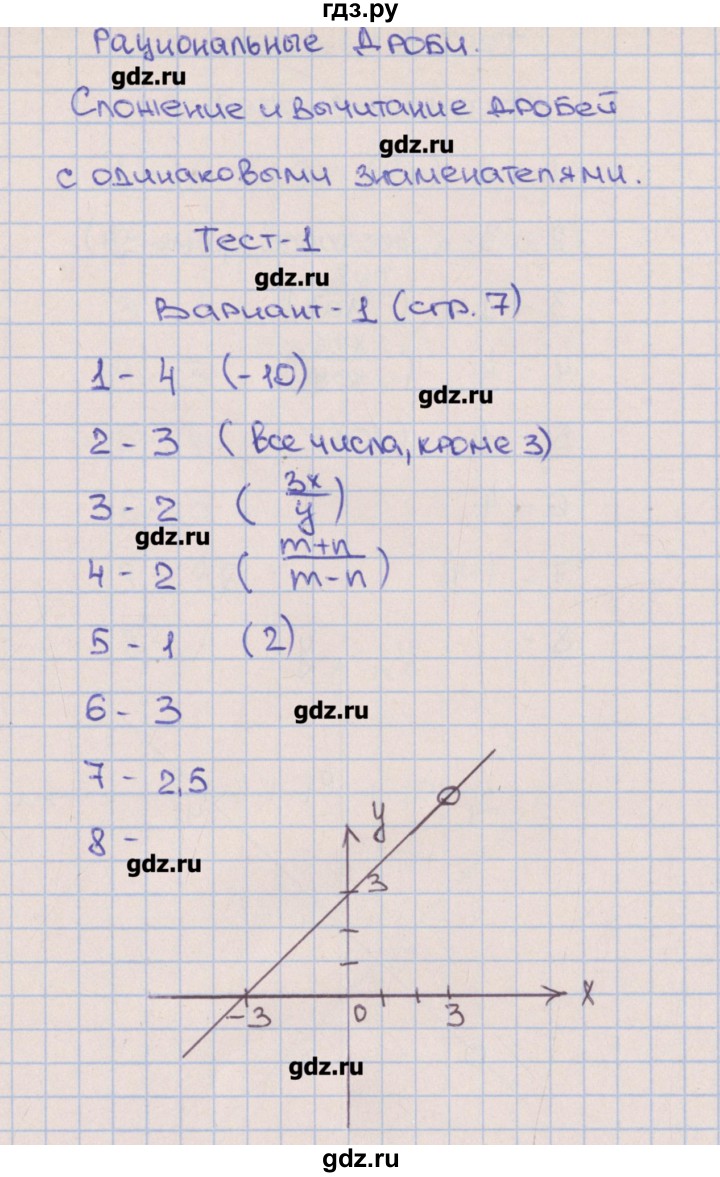 гдз.ру
Рациональные дроби.
gdz.ru
Сложение и вычитание дробей
gdz.ru
с одинаковыми знаменателями.
Тест-1
gdz.ru
Вариант-1 (стр. 7)
1 - 4 (-10)
gdz.ru
2 - 3 (все числа, кроме 3)
3 - 2 (3x/y)
gdz.ru
4 - 2 (m+n/m-n)
5 - 1 (2)
6 - 3
gdz.ru
7 - 2,5
8 -
gdz.ru
y
3
x
-3 0 3
gdz.ru
gdz.ru